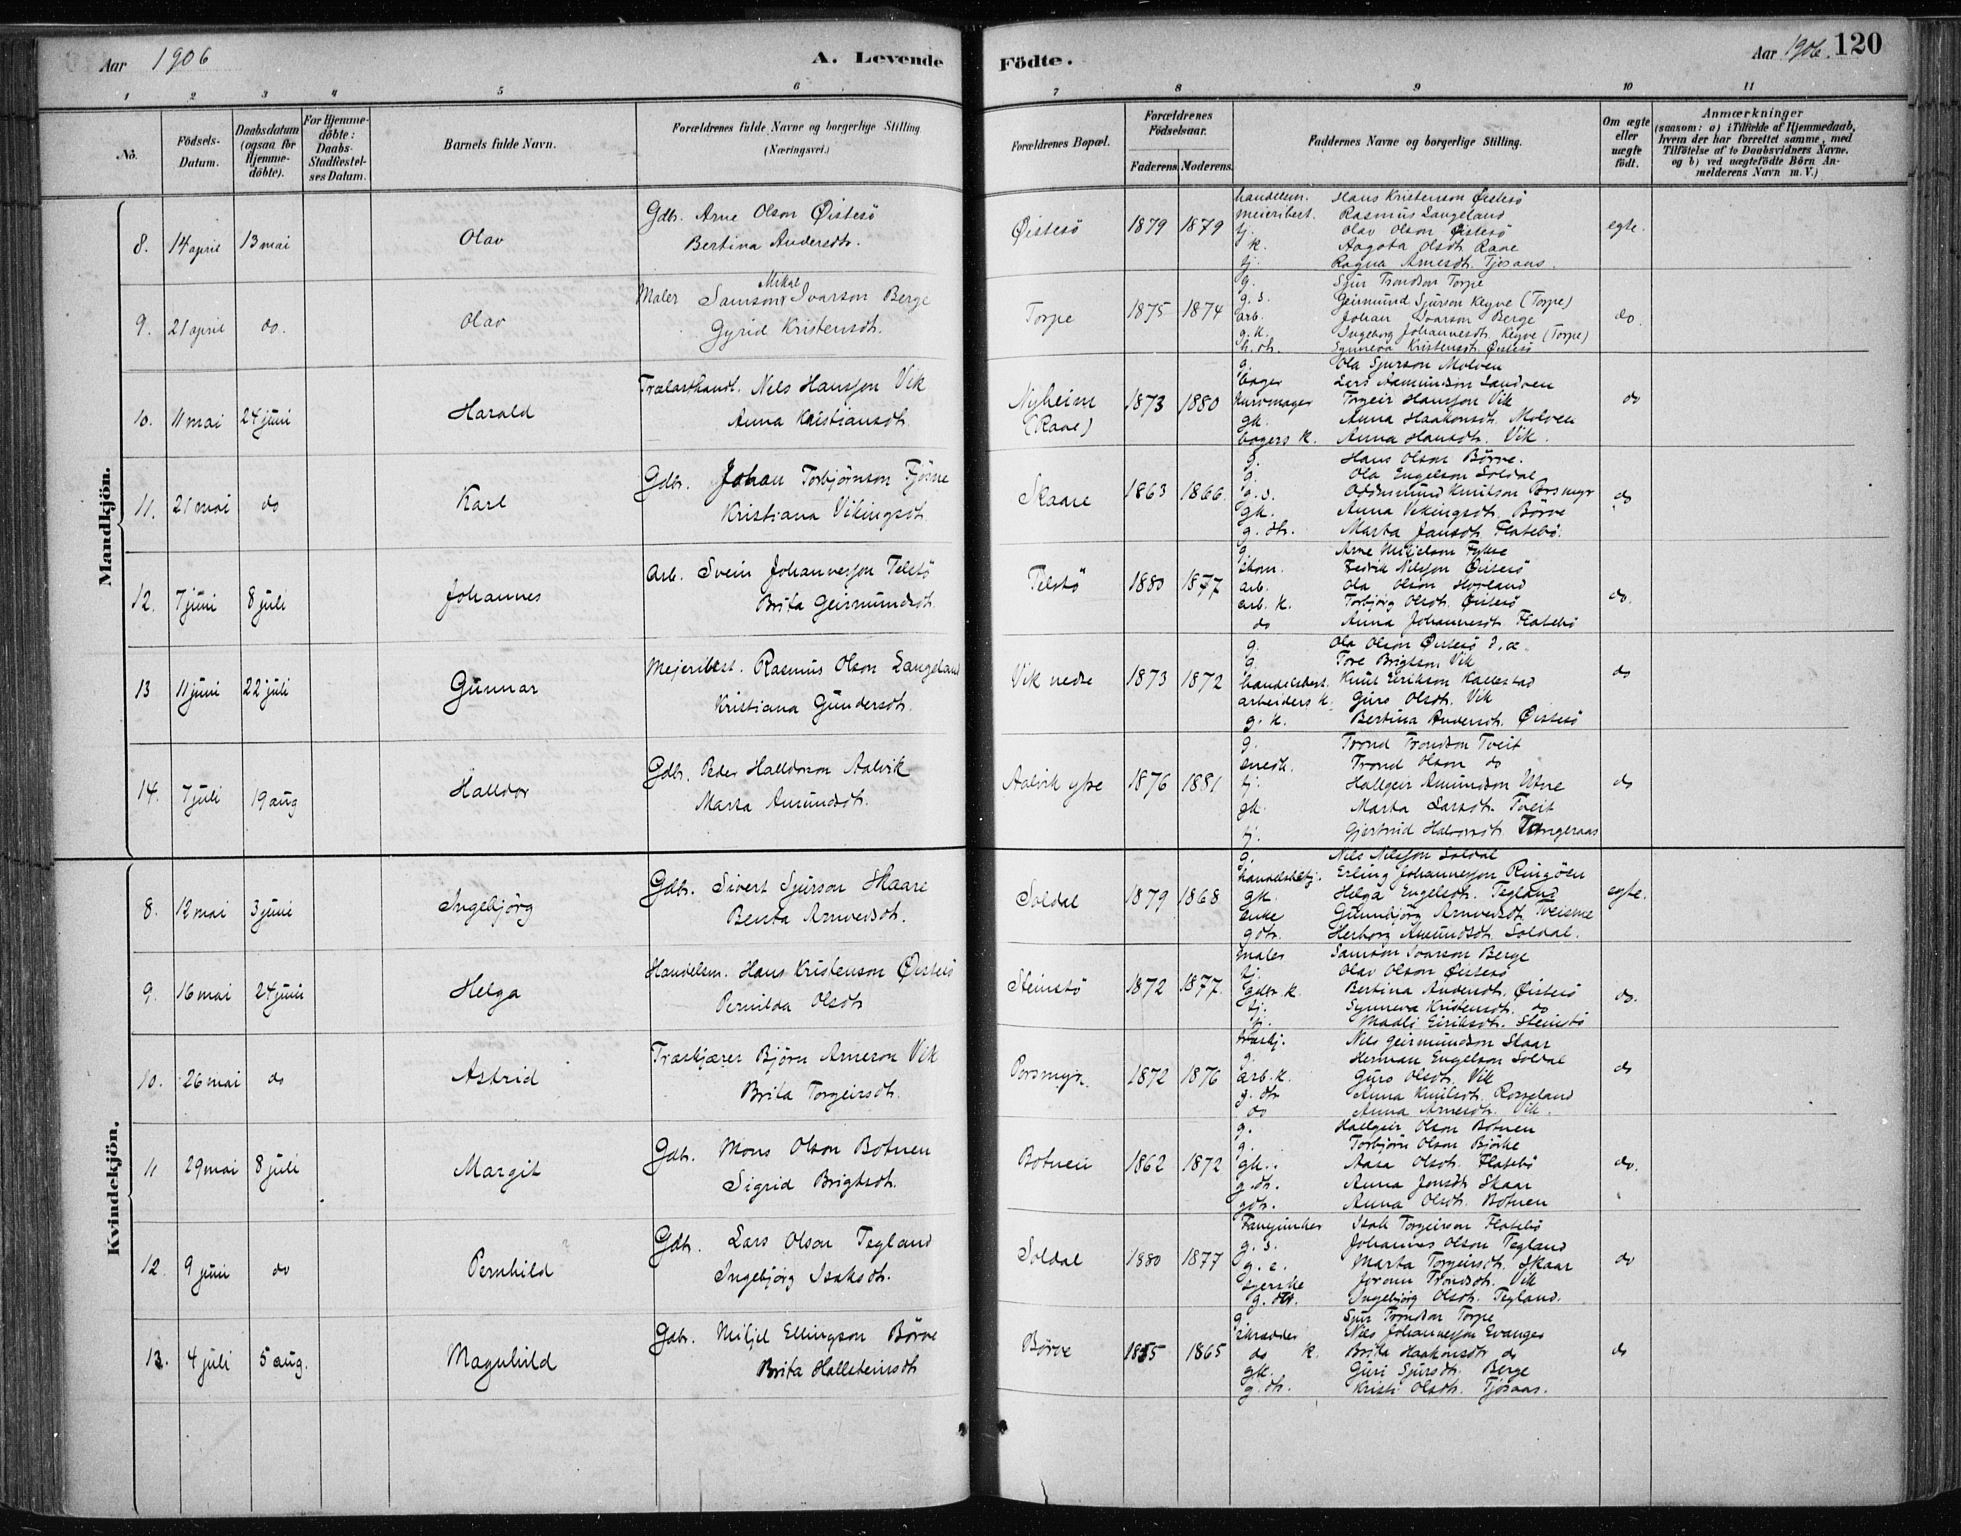 Aar 1906
A. Levende
Födte.
Aar 1906. 120
1 2 3 4 5 6 7 8 9 10 11
No.
Födsels-Datum.
Daabsdatum (ogsaa for Hjemme-döbte).
For Hjemme-döbte: Daabs-Stadfæstel-ses Datum.
Barnets fulde Navn.
Forældrenes fulde Navne og borgerlige Stilling. (Næringsvei.)
Forældrenes Bopæl.
Forældrenes Födselsaar.
Faderens. Moderens.
Faddernes Navne og borgerlige Stilling.
Om ægte eller uægte födt.
Anmærkninger
(saasom: a) i Tilfælde af Hjemmedaab, hvem der har forrettet samme, med Tilföielse af to Daabsvidners Navne, og b) ved uægtefödte Börn An-melderens Navn m. V.)
Mandkjön.
8. 14 april 13 mai Olav
Gdbr. Arne Olson Øistesö
Bertina Andersdtr.
Øistesö 1879 1879 egte.
handelsm. Hans Kristenson Øistesö
meieribest. Rasmus Langeland
tj. Olav Olson Øistesö
k. Aagota Olsdtr. Raae
tj. Ragna Arnesdtr. Tjosaas.
9. 21 april do. Olav
Mikal
Maler Samson Ivarson Berge
Gyrid Kristensdtr.
Torpe 1875 1874 do.
g. Sjur Trondson Torpe
g. s. Geirmund Sjurson Kegve (Torpe)
arb. Johan Ivarson Berge
g. k. Ingeborg Johannesdtr. Kegve (Torpe)
h. dtr. Synneva Kristensdtr. Øistesö
10. 11 mai 24 juni Harald
Trælasthandl. Nels Hansson Vik
Anna Kristiansdtr.
Nyheim (Raae) 1873 1880 do
g. Ola Sjurson Molven
bager Lars Aamundson Sandven
kurvmager Torgeir Hansson Vik
gk. Anna Haakonsdtr. Molven
bagers k. Anna Hansdtr. Vik.
11. 21 mai do Karl
Gdbr. Johan Torbjörnson Fjösne
Kristiana Vikingsdtr.
Skaare 1863 1866 do
g. Hans Olson Börve.
g. Ola Engelson Soldal
g. s. Oddmund Knutson Porsmyr
gk. Anna Vikingsdtr. Börve
g. dtr. Marta Jansdtr. Flatebö.
12. 7 juni 8 juli Johannes
Arb. Svein Johannesson Telstö
Brita Geirmundsdtr.
Telstö 1880 1877 do.
g. Arne Miljelson Fykse
Fedrik Nilsson Øistesö
arb. Ola Olson Hovland
arb. k. Torbjörg Olsdtr. Øistesö
do Anna Johannesdtr. Flatebö
13 11 juni 22 juli Gunnar
Mejeribest. Rasmus Olson Langeland
Kristiana Gundersdtr.
Vik nedre 1873 1872 do
g. Ola Olson Øistesö d. æ.
g. Tore Brigtson Vik
handelsbest. Knut Eirikson Kallestad
arbeiders k. Guro Olsdtr. Vik
g. k. Bertina Andersdtr. Øistesö
14. 7 juli 19 aug Halldor
Gdbr. Peder Halldorson Aalvik
Marta Amundsdtr.
Aalvik ytre 1876 1881 do
g. Trond Trondson Tveit
snedk. Trond Olson do
tj. Hallgeir Amundson Utne
gk. Marta Larsdtr. Tveit
tj. Gjertrud Halvorsdtr. Tangeraas
Kvindekjön.
8. 12 mai 3 juni Ingebjörg
Gdbr. Sivert Sjurson Skaare
Benta Arnvedsdtr.
Soldal 1879 1868 egte.
g. Nils Nilsson Soldal
Erling Johannesson Ringöen
gk. Helga Engelsdtr. Tegland
enke Gunnbjörg Arnvedsdtr. Tveisme
gdtr. Herborg Amundsdtr. Soldal.
9. 16 mai 24 juni Helga
Handelsm. Hans Kristenson Øistesö
Pernilda Olsdtr.
Steinstö 1872 1877. do.
maler Samson Ivarson Berge
tj. Olav Olson Øistesö
gdbr. k. Bertina Andersdtr. Øistesö
tj. Synneva Kristensdtr. do
tj. Madli Eiriksdtr. Steinstö
10. 26 mai do Astrid
Træskjærer Björn Arneson Vik
Brita Torgeirsdtr.
Porsmyr. 1872 1876 do
træskj. Nils Geirmundson Skaar
g. Herman Engelson Soldal
arb. k. Guro Olsdtr. Vik
g. dtr. Anna Knutsdtr. Rosseland
do Anna Arnesdtr. Vik.
11 29 mai 8 juli Margit
Gdbr. Mons Olson Botnen
Sigrid Brigtsdtr.
Botnen 1862 1872 do.
g. Hallgeir Olson Botnen
g. Torbjörn Olson Björke
gk. Aasa Olsdtr. Flatebö
g. dtr. Anna Jonsdtr. Skaar
gdtr. Anna Olsdtr. Botnen
12. 9 juni do Pernhild
Gdbr. Lars Olson Tegland
Ingebjörg Isaksdtr.
Soldal 1880 1877 do
Isak Torgeirson Flatebö
g. s. Johannes Olson Tegland
g. e. Marta Torgeirsdtr. Skaar
Jorann Trondsdtr. Vik
g. dtr. Ingebjörg Olsdtr. Tegland.
13. 4 juli 5 aug. Magnhild
Gdbr. Miljel Ellingson Börve
Brita Hallsteinsdtr
Börve 1855 1865 do
g. Sjur Trondson Torpe
skrædder Nils Johannesson Evanger
do k. Brita Haakonsdtr do
gk. Guri Sjursdtr. Berge
g. dtr. Kristi Olsdtr. Tjosaas.